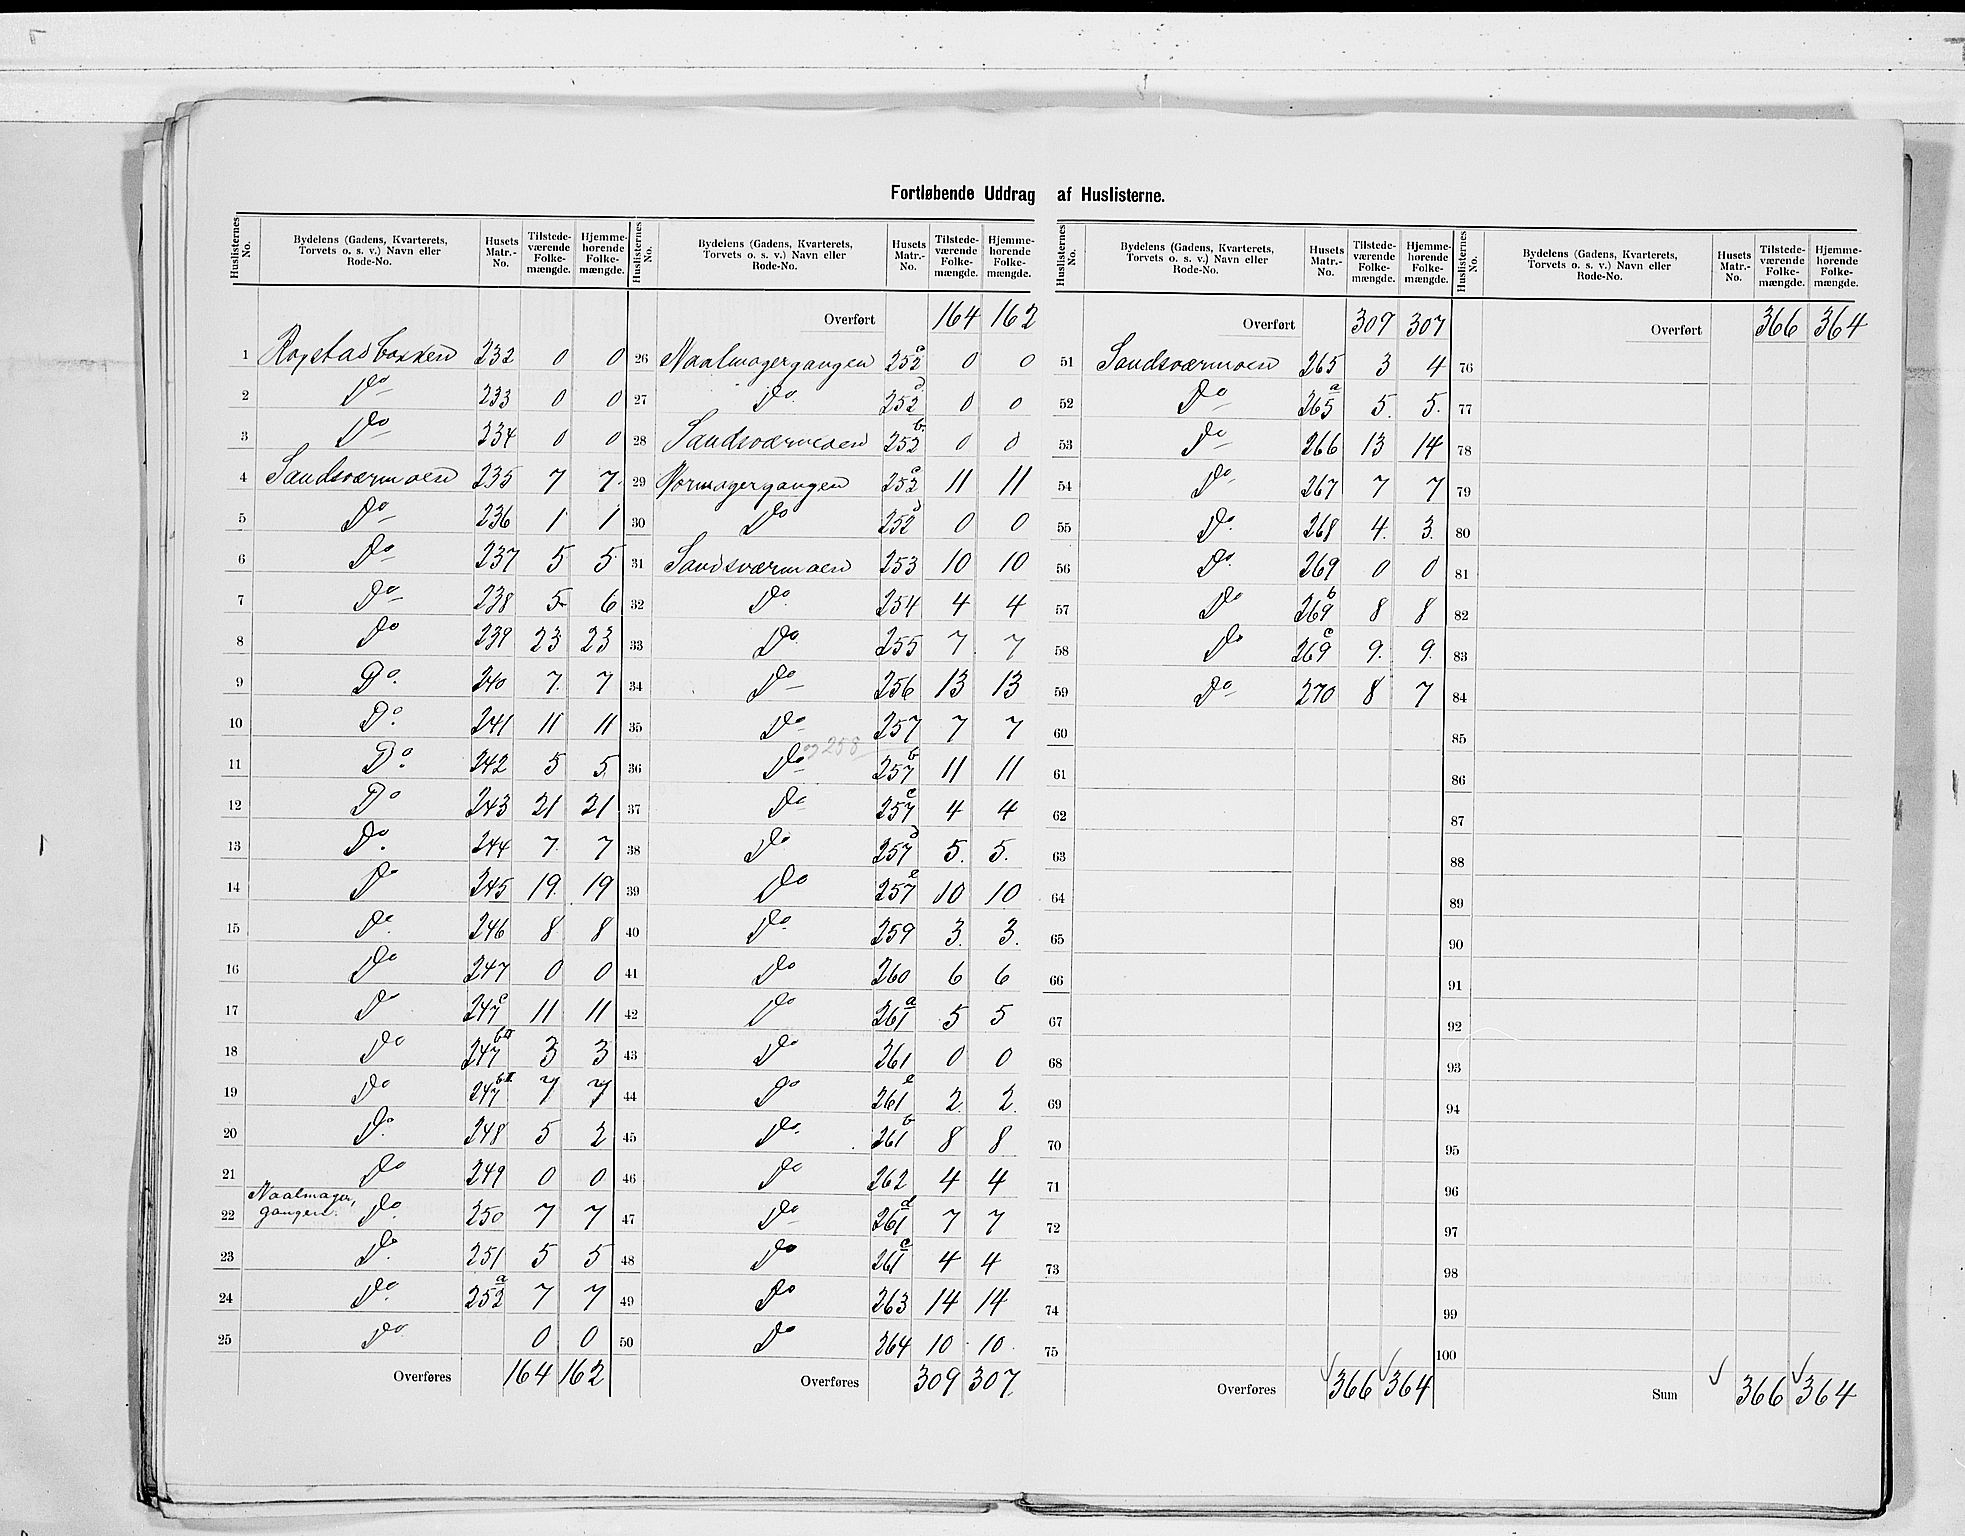 Fortløbende Uddrag af Huslisterne.
Huslisternes No. | Bydelens (Gadens, Kvarterets, Torvets o. s. v.) Navn eller Rode-No. | Husets Matr.-No. | Tilstedeværende Folkemængde. | Hjemmehørende Folkemængde.
1 Rogstadbakken 232 0 0
2 Do 233 0 0
3 Do 234 0 0
4 Sandsværmoen 235 7 7
5 Do 236 1 1
6 Do 237 5 5
7 Do 238 5 6
8 Do 239 23 23
9 Do 240 7 7
10 Do 241 11 11
11 Do 242 5 5
12 Do 243 21 21
13 Do 244 7 7
14 Do 245 19 19
15 Do 246 8 8
16 Do 247 0 0
17 Do 247c 11 11
18 Do 247b 3 3
19 Do 247b 7 7
20 Do 248 5 2
21 Do 249 0 0
22 Naalmagergangen. Do 250 7 7
23 Do 251 5 5
24 Do 252a 7 7
25 Do 0 0
Overføres 164 162
Huslisternes No. | Bydelens (Gadens, Kvarterets, Torvets o. s. v.) Navn eller Rode-No. | Husets Matr.-No. | Tilstedeværende Folkemængde. | Hjemmehørende Folkemængde.
Overført 164 162
26 Naalmagergangen 252c 0 0
27 Do 252d 0 0
28 Sandsværmoen 252b 0 0
29 252c 11 11
30 Do 252d 0 0
31 Sandsværmoen 253 10 10
32 Do 254 4 4
33 Do 255 7 7
34 Do 256 13 13
35 Do 257 7 7
og 258
36 Do 257b 11 11
37 Do 257c 4 4
38 Do 257d 5 5
39 Do 257e 10 10
40 Do 259 3 3
41 Do 260 6 6
42 Do 261a 5 5
43 Do 261 0 0
44 Do 261e 2 2
45 Do 261b 8 8
46 Do 262 4 4
47 Do 261d 7 7
48 Do 261c 4 4
49 Do 263 14 14
50 Do 264 10 10
Overføres 309 307
Huslisternes No. | Bydelens (Gadens, Kvarterets, Torvets o. s. v.) Navn eller Rode-No. | Husets Matr.-No. | Tilstedeværende Folkemængde. | Hjemmehørende Folkemængde.
Overført 309 307
51 Sandsværmoen 265 3 4
52 Do 265a 5 5
53 Do 266 13 14
54 Do 267 7 7
55 Do 268 4 3
56 Do 269 0 0
57 Do 269b 8 8
58 Do 269c 9 9
59 Do 270 8 7
60
61
62
63
64
65
66
67
68
69
70
71
72
73
74
75
Overføres 366 364
Huslisternes No. | Bydelens (Gadens, Kvarterets, Torvets o. s. v.) Navn eller Rode-No. | Husets Matr.-No. | Tilstedeværende Folkemængde. | Hjemmehørende Folkemængde.
Overført 366 364
76
77
78
79
80
81
82
83
84
85
86
87
88
89
90
91
92
93
94
95
96
97
98
99
100
Sum 366 364